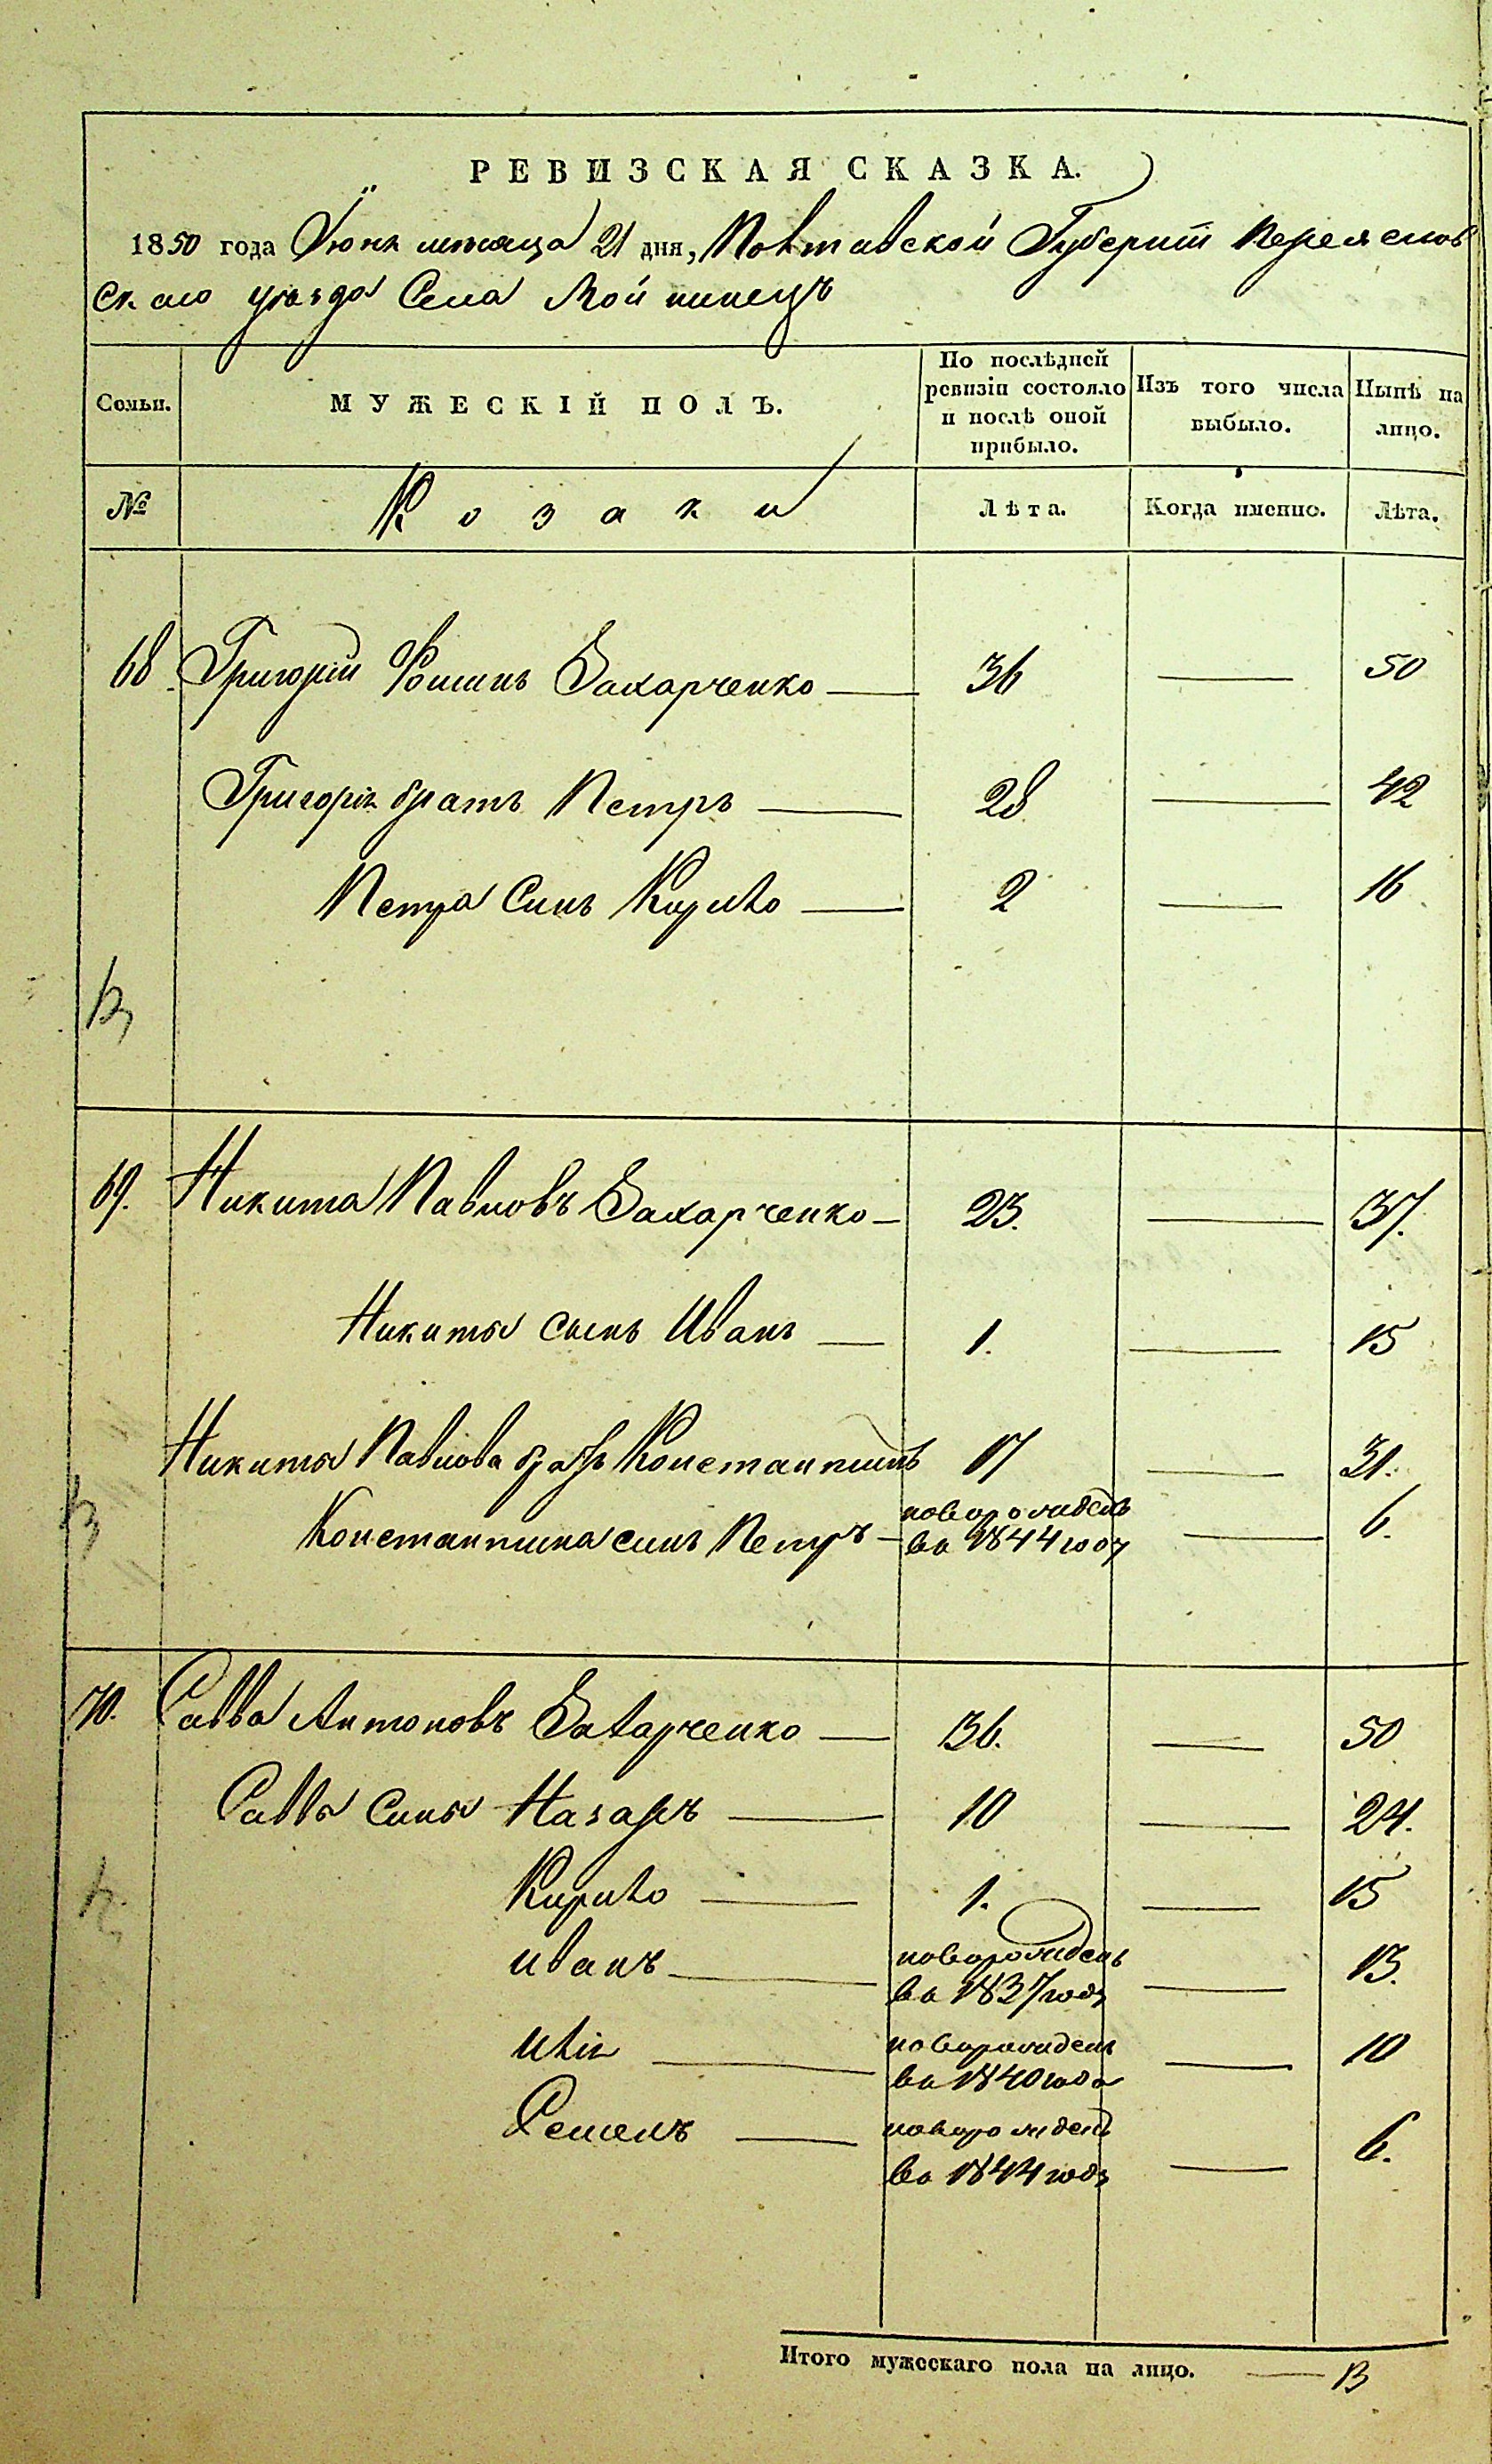 РЕВИЗСКАЯ СКАЗКА.
1850 года Июня месяца 21 дня, Полтавской Губерніи Переяслов
скаго уезда Села Мойнинецъ
Семьи.
МУЖЕСКІЙ ПОЛЪ.
По послѣдней ревизіи состояло и послѣ оной прибыло.
Изъ того числа выбыло.
Нынѣ на лицо.
№
Козаки
Лѣта.
Когда именно.
Лѣта.
68 Григорій Фоминъ Захарченко 36 50
Григорія братъ Петръ 28 42
Петра Синъ Кирило 2 16
69. Никита Павловъ Захарченко 23. 37.
Никиты сынъ Иванъ 1. 15
Никиты Павлова братъ Константинъ 17 31.
Константина синъ Петръ новорожденъ 6.
во 1844 году
70. Савва Антоновъ Захарченко 36. 50
Саввы Сины Назаръ 10 24.
Кирило 1. 15
Иванъ новорожденъ 13.
во 1837 году
Илія новорожденъ 10
во 1840 года
Семенъ новорожденъ 6.
во 1844 году
Итого мужескаго пола на лицо. 13